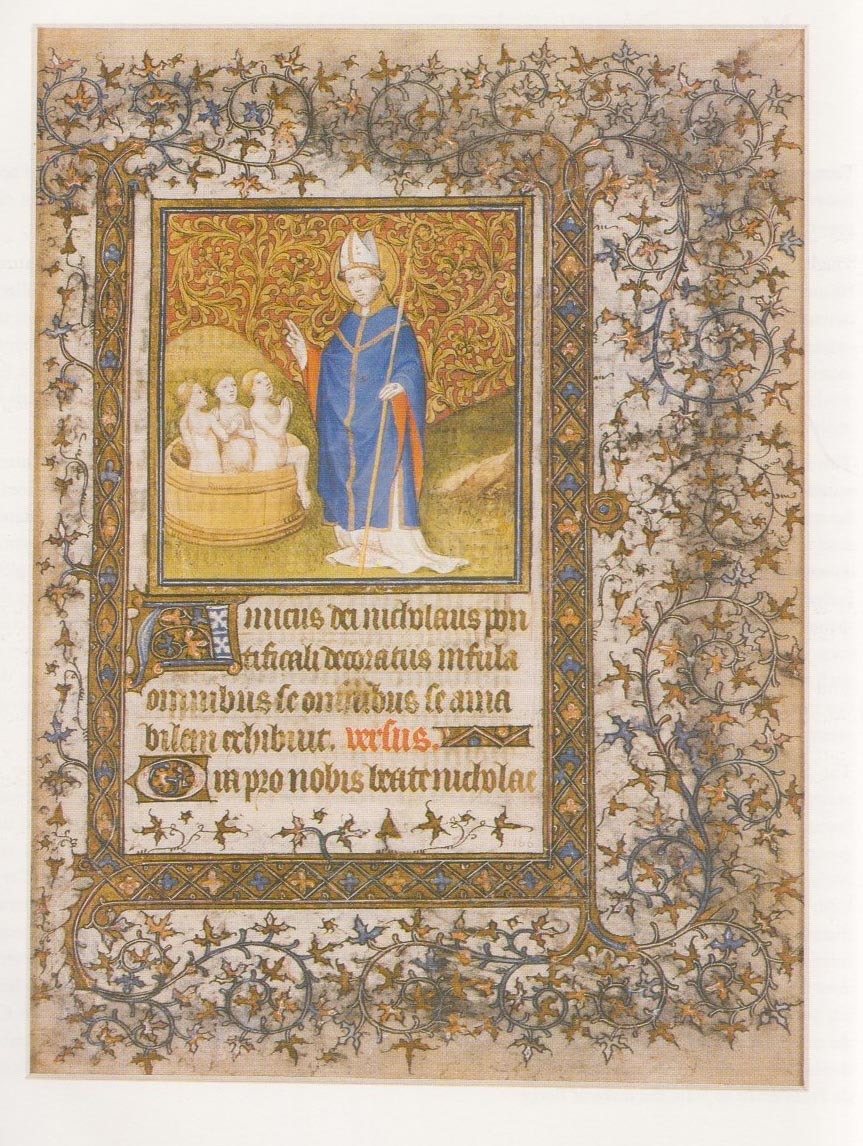 Amicus dei nicholaus pon
tificali decoratus infula
omnibus se omnibus se ama
bilem exhibuit. versus.
Ora pro nobis beate nicholae